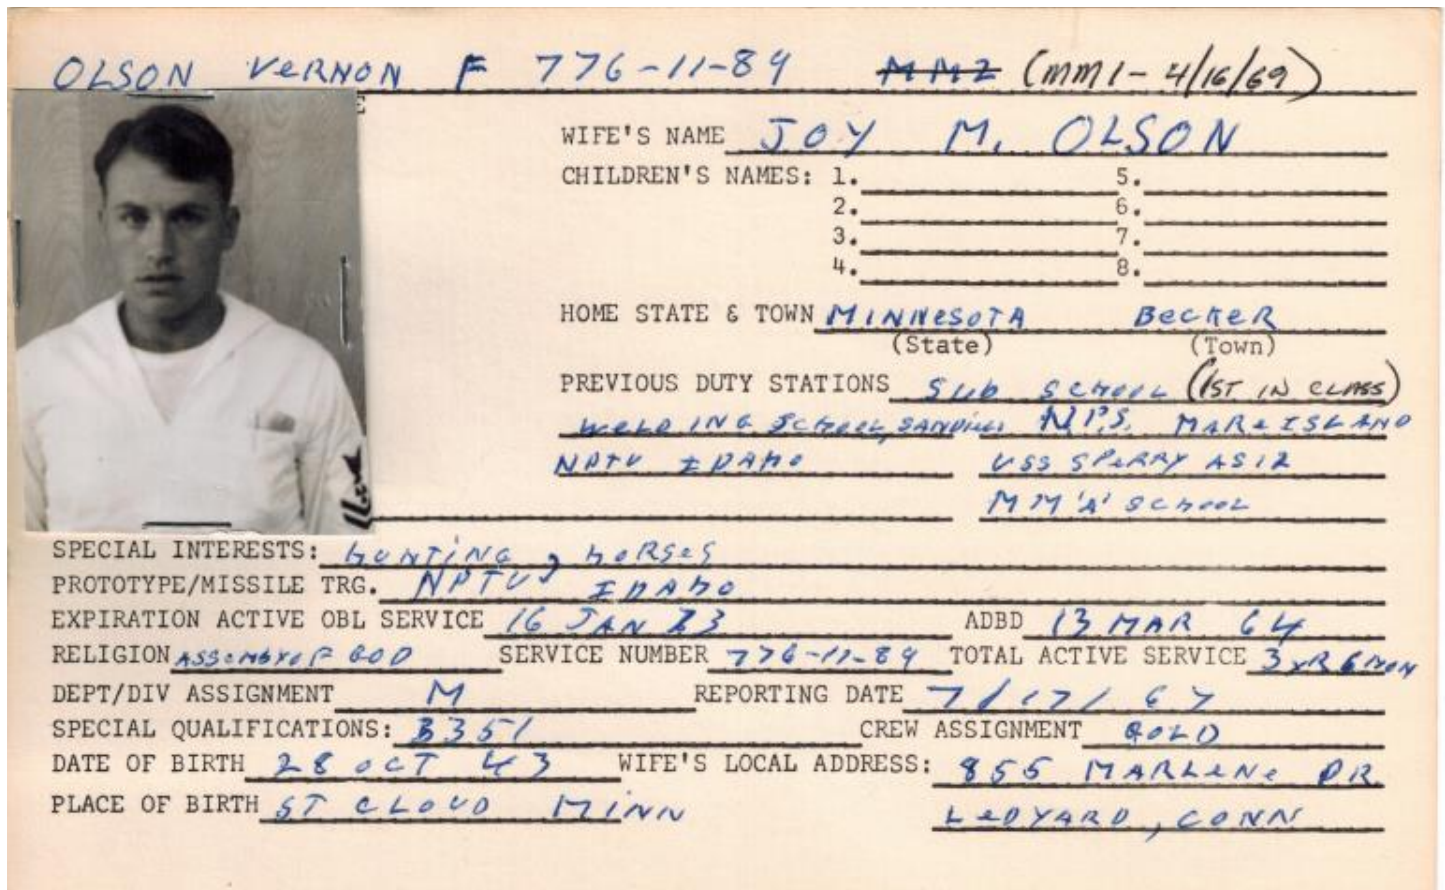 OLSON VERNON F 776-11-89 MM2 (MM1 - 4/16/69)
WIFE'S NAME JOY M. OLSON
CHILDREN'S NAMES: 1. 5.
2. 6.
3. 7.
4. 8.
HOME STATE & TOWN MINNESOTA BECKER
(State) (Town)
PREVIOUS DUTY STATIONS SUB SCHOOL (1ST IN CLASS)
WELDING SCHOOL, SANDIEGO N.P.S. MARE ISLAND
NPTU IDAHO USS SPERRY AS12
MM 'A' SCHOOL
SPECIAL INTERESTS: HUNTING, HORSES
PROTOTYPE/MISSILE TRG. NPTU, IDAHO
EXPIRATION ACTIVE OBL SERVICE 16 JAN 73 ADBD 13 MAR 64
RELIGION ASSEMBY OF GOD SERVICE NUMBER 776-11-89 TOTAL ACTIVE SERVICE 3 YR 6 MON
DEPT/DIV ASSIGNMENT M REPORTING DATE 7/17/67
SPECIAL QUALIFICATIONS: 3351 CREW ASSIGNMENT GOLD
DATE OF BIRTH 28 OCT 43 WIFE'S LOCAL ADDRESS: 855 MARLENE DR
PLACE OF BIRTH ST CLOUD MINN LEDYARD, CONN